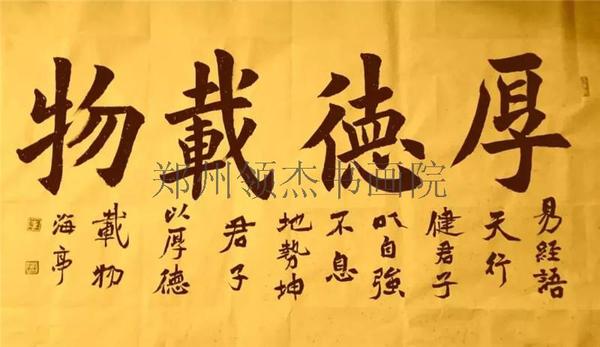 厚德載物
易經語
天行
健君子
以自強
不息
地勢坤
君子
以厚德
載物
海亭
郑州领杰书画院